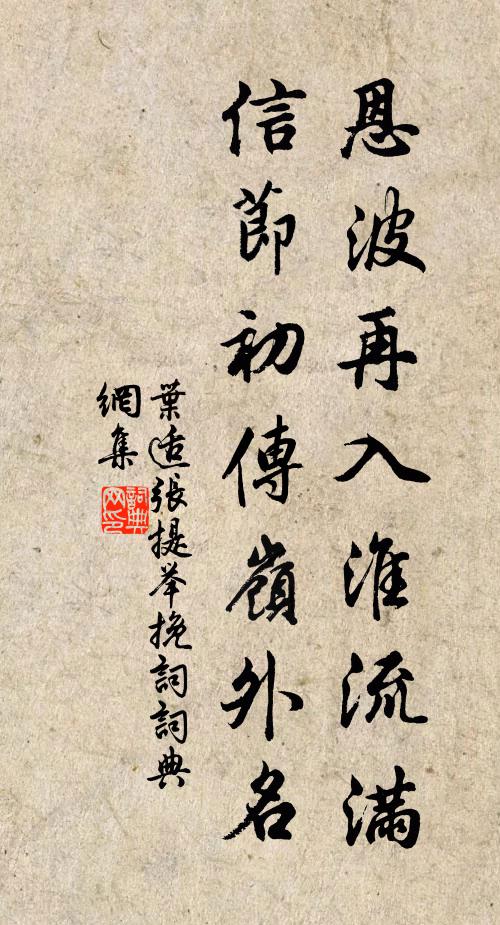 恩波再入淮流滿
信節初傳嶺外名
葉适張提舉挽詞詞典
網集
詞典網印